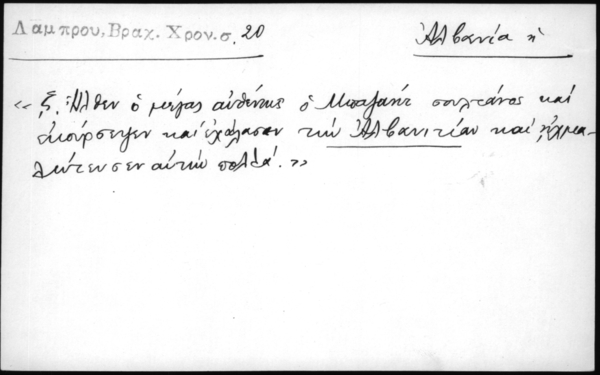 Λαμπρου, Βραχ. Χρον. σ. 20
Ἀλβανία ἡ
«ξ. Ἦλθεν ὁ μέγας αὐθέντης ὁ Μπαγιαζὴτ σουλτάνος καὶ
ἐκούρσεψεν καὶ ἐχάλασεν τὴν Ἀλβανιτίαν καὶ ᾐχμα-
λώτευσεν αὐτὴν πολλά.»